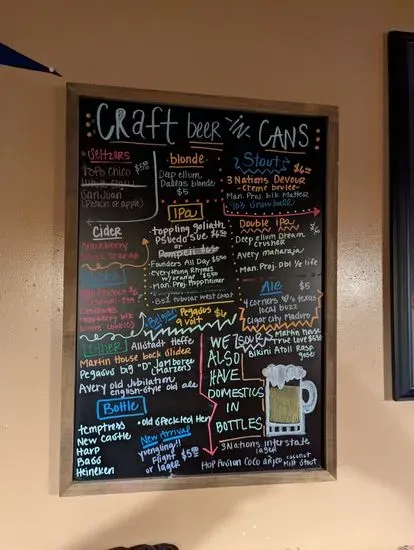 CRaft beer -in- CANS
Seltzers
Topo Chico $5.50
San Juan
(Peach or apple)
blonde
Deep ellum
Dallas blonde
$5
Stout $6.50
3 Nations Devour
-Creme brulee-
Man. Proj. blk Matter
903. Snowball
Cider
IPA
toppling goliath
PSvedo Sue $6.50
Pompeii
Founders All Day $5.50
everything Rhymes
w/orange $5.50
Man. Proj. Hoppheimer
BSI tubular west coast
Double IPA
Deep ellum Dream
Crusher
Avery maharaja
Man. Proj. Dbl ½ life
Ale $5
4 corners w/o texas
local buzz
Cigar City Maduro
Pegasus
9 volt
Other Allstadt Heffe
Martin House back Glider
Pegasus big "D" Jamboree
(Marzen)
Avery old Jubilation
english-style old ale
WE
ALSO
HAVE
DOMESTICS
IN
BOTTLES
Sours
Martin House
True Love
Bikini Atoll Rasp
gose
Bottle
temptress
New Castle
Harp
Bass
Heineken
• Old Speckled Hen
New Arrival
Yvengling!!
Flight $5.00
or lager
3 Nations interstate
lager
Hop Fusion Coco Añejo, coconut
Milk Stout